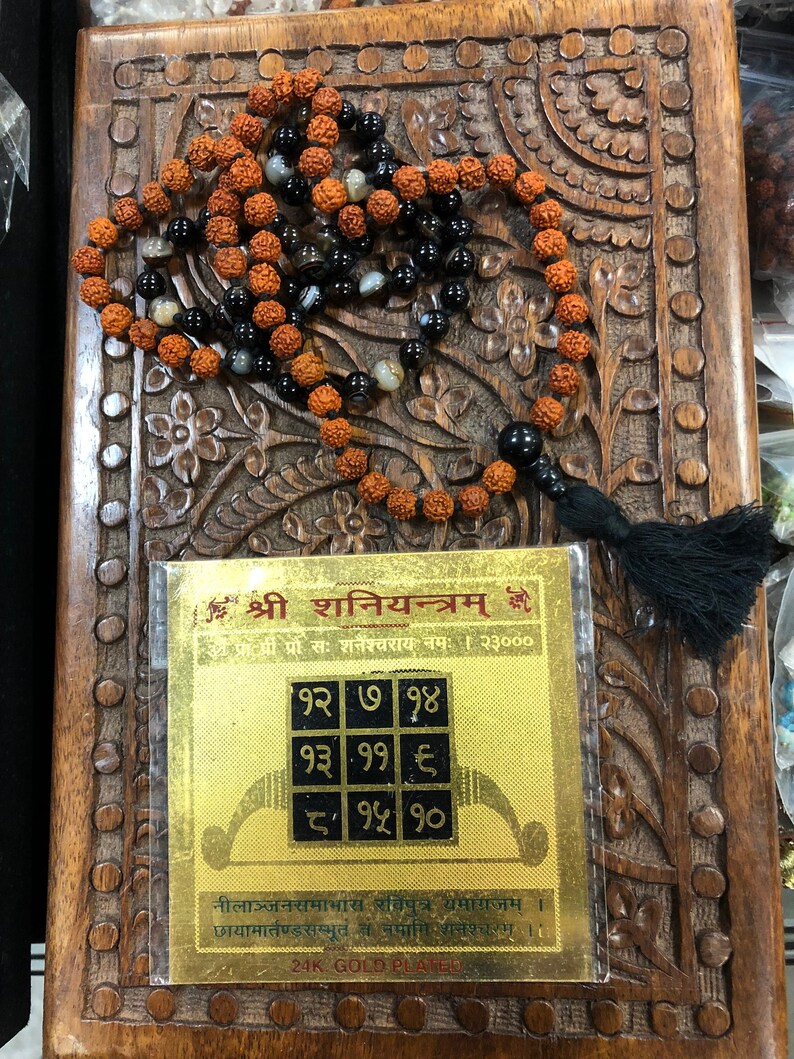 श्री शनियन्त्रम्
ॐ प्रां प्रीं प्रों सः शनेश्चराय नमः । २३०००
१२ ७ १४
१३ ११ ९
८ १५ १०
नीलाञ्जनसमाभास रविपुत्र यमाग्रजम् ।
छायामार्तण्डसम्भूत त नमामि शनेश्चरम् ।।
24K. GOLD PLATED